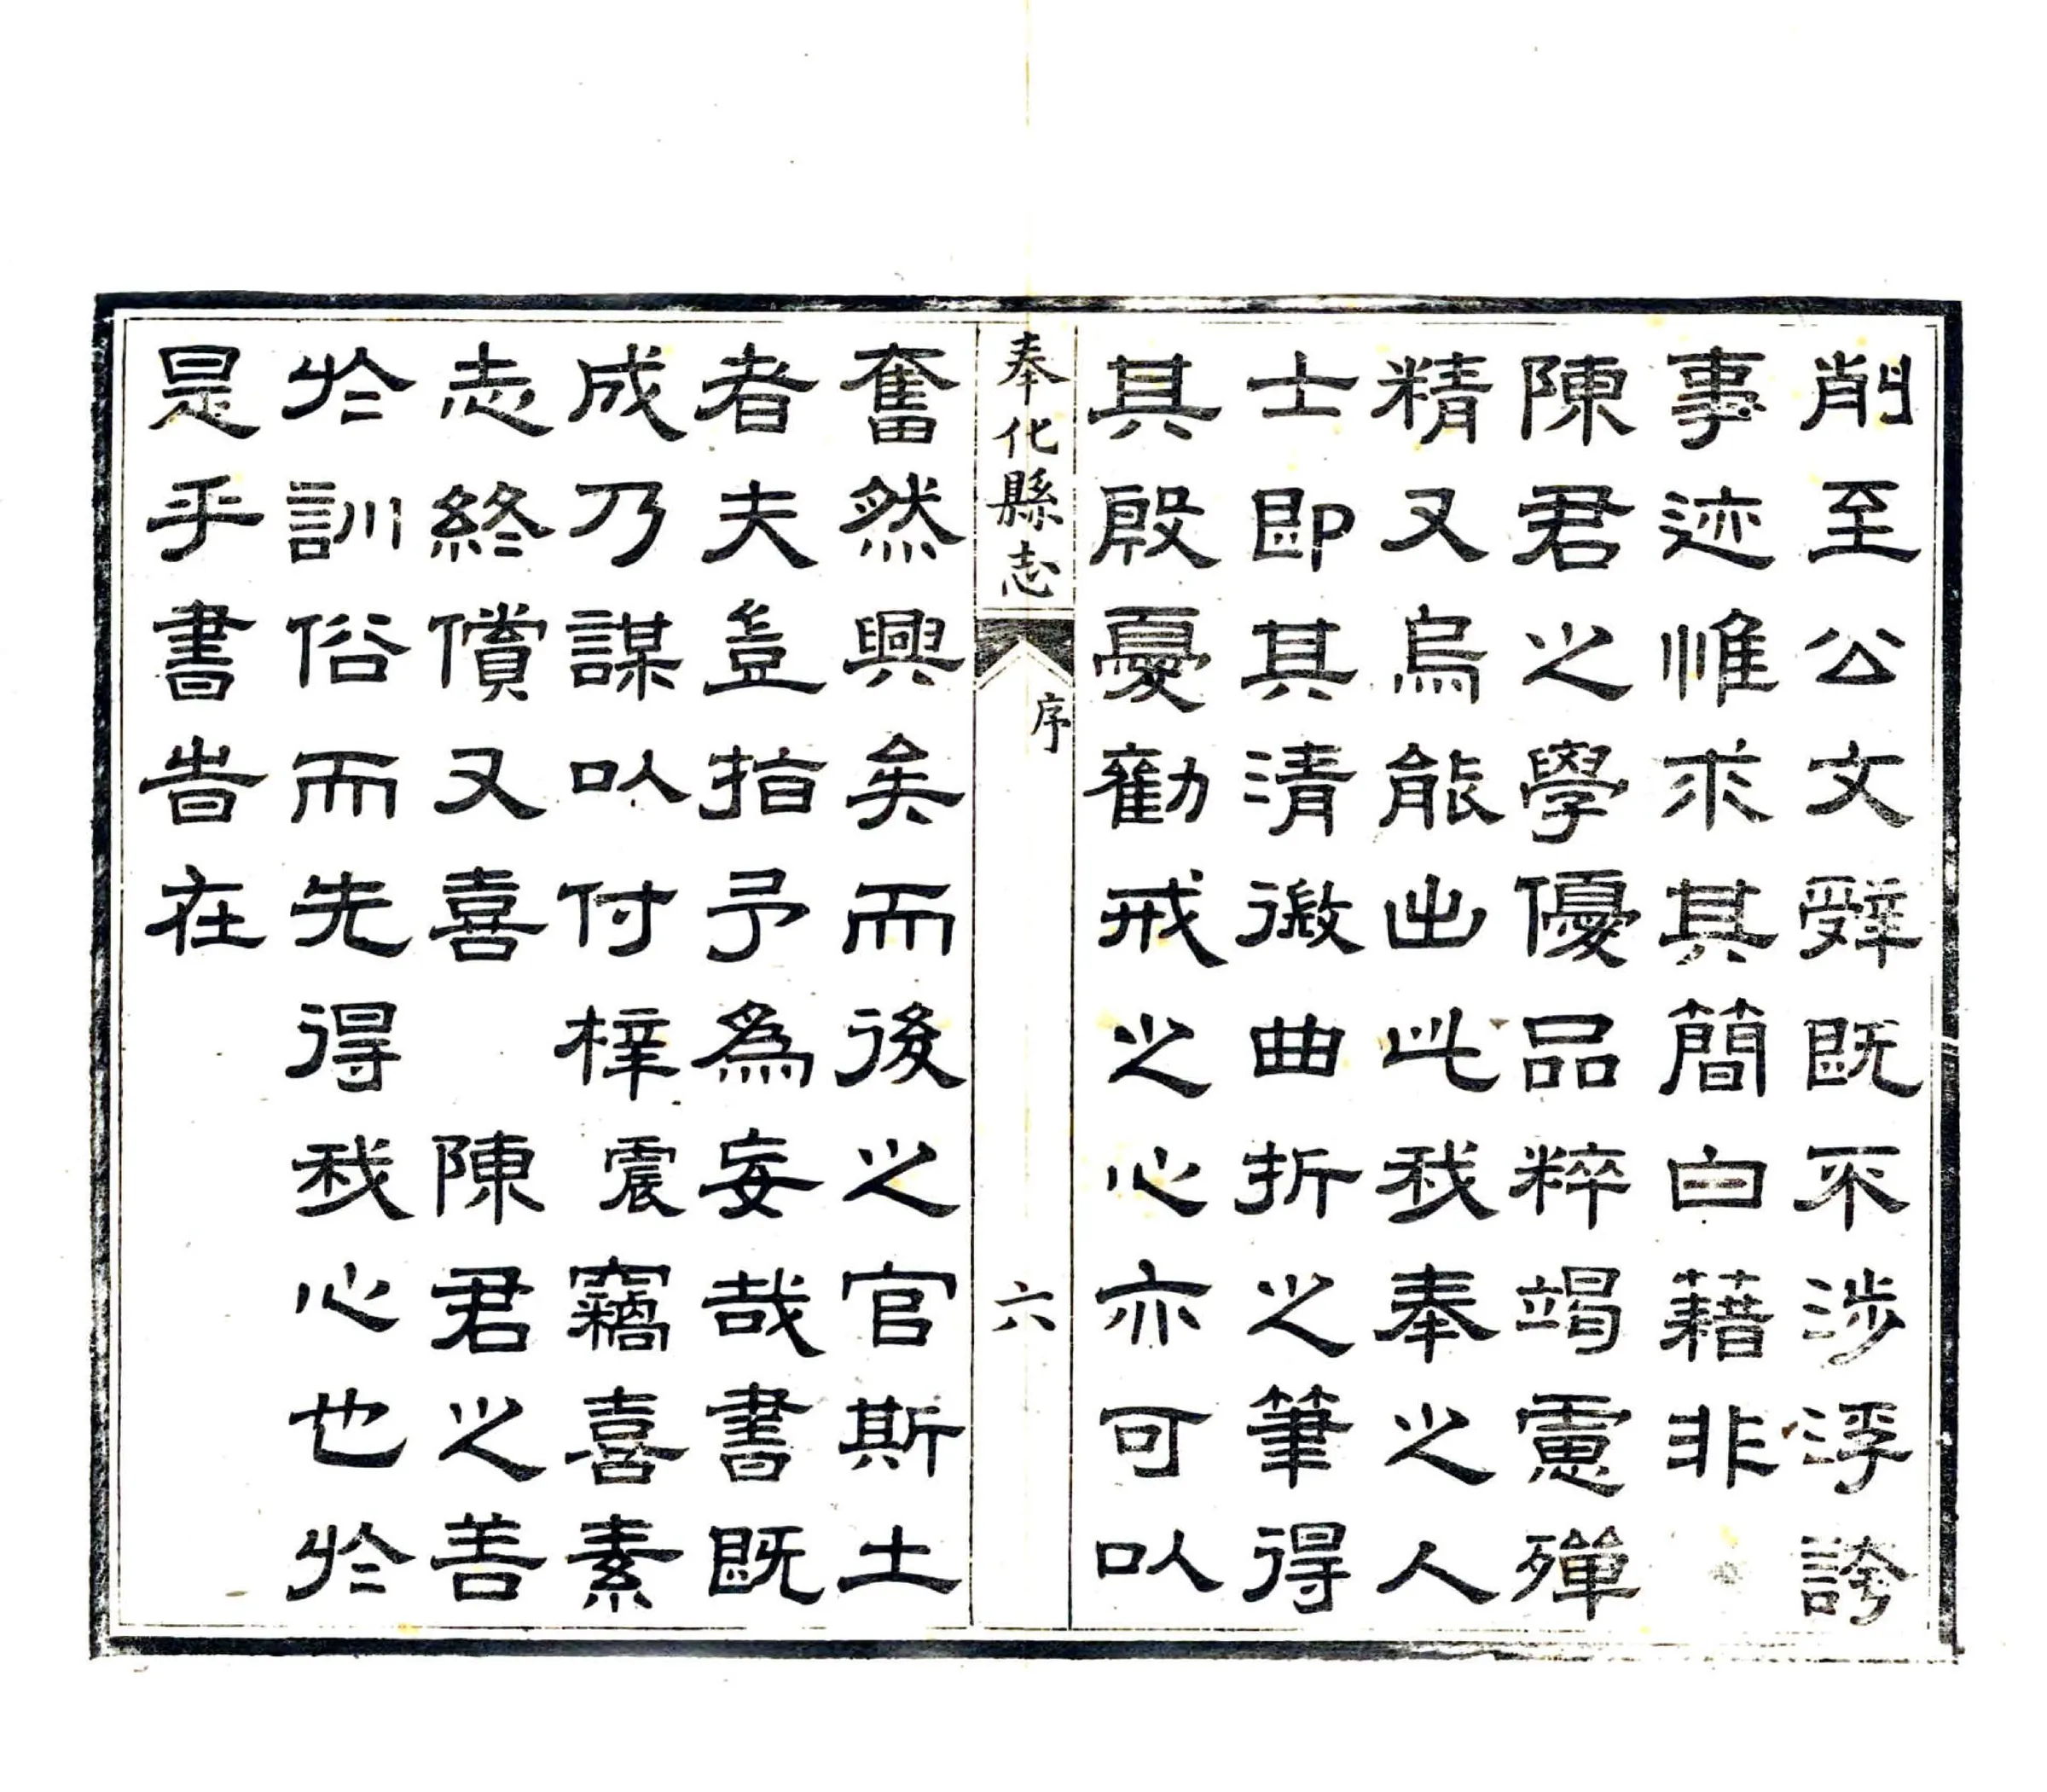 削至公文辭既不涉浮誇
事迹惟求其簡白藉非
陳君之學優品粹竭慮殫
精又烏能出此我奉之人
士即其清微曲折之筆得
其殷憂勸戒之心亦可以
奉化縣志
序
六
奮然興矣而後之官斯土
者夫豈指予為妄哉書既
成乃謀以付梓震竊喜素
志終償又喜 陳君之善
於訓俗而先得我心也於
是乎書時在